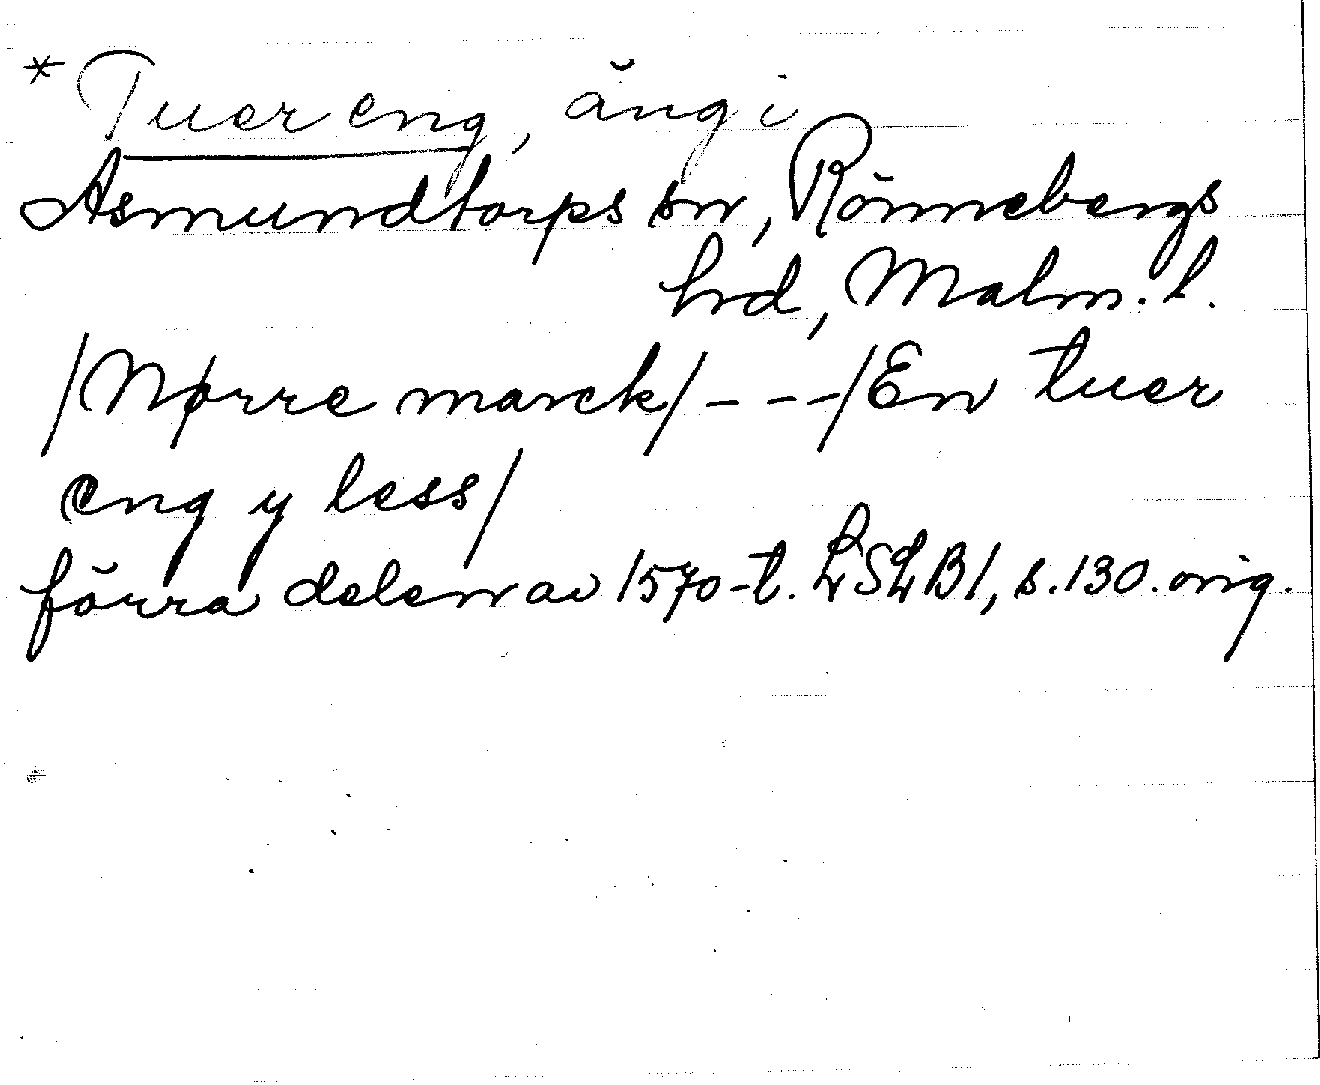 * Tuer eng, äng i
Asmundtorps sn, Rönnebergs
hrd, Malm. l.
/Nørre marck/ - - -/En tuer
eng y less/
förra delen av 1570-t. LSLB1, s. 130. orig.